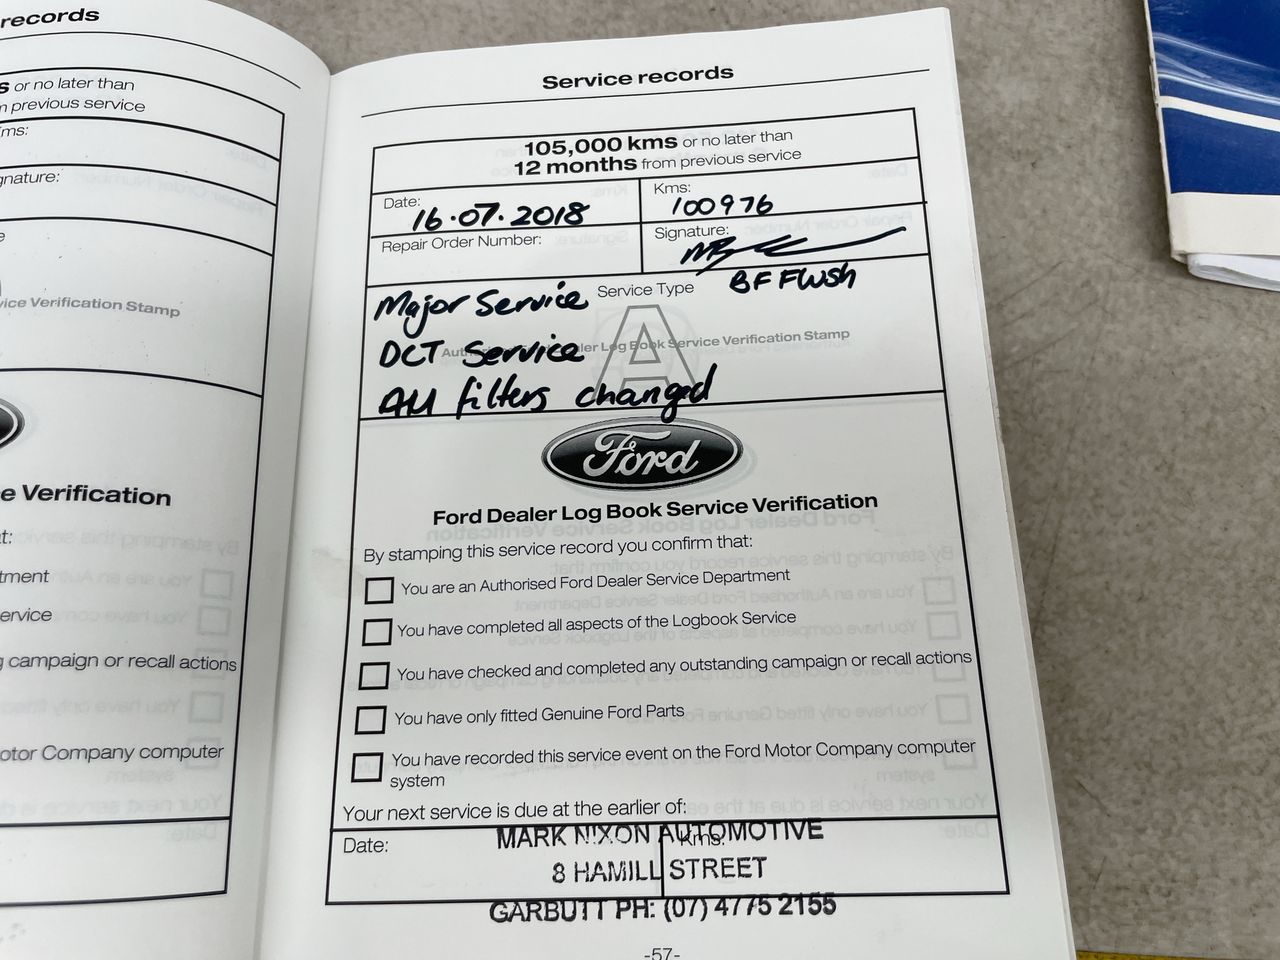 records
s or no later than
m previous service
ms:
gnature:
e
vice Verification Stamp
e Verification
t:
tment
ervice
g campaign or recall actions
otor Company computer
Service records
105,000 kms or no later than
12 months from previous service
Date: 16.07.2018
Kms: 100976
Repair Order Number:
Signature:
Major Service
Service Type
BF Flush
A
DCT Service
Authorised Ford Dealer Log Book Service Verification Stamp
All filters changed
Ford
Ford Dealer Log Book Service Verification
By stamping this service record you confirm that:
You are an Authorised Ford Dealer Service Department
You have completed all aspects of the Logbook Service
You have checked and completed any outstanding campaign or recall actions
You have only fitted Genuine Ford Parts
You have recorded this service event on the Ford Motor Company computer
system
Your next service is due at the earlier of:
Date:
Kms:
MARK NIXON AUTOMOTIVE
8 HAMILL STREET
GARBUTT PH: (07) 4775 2155
-57-